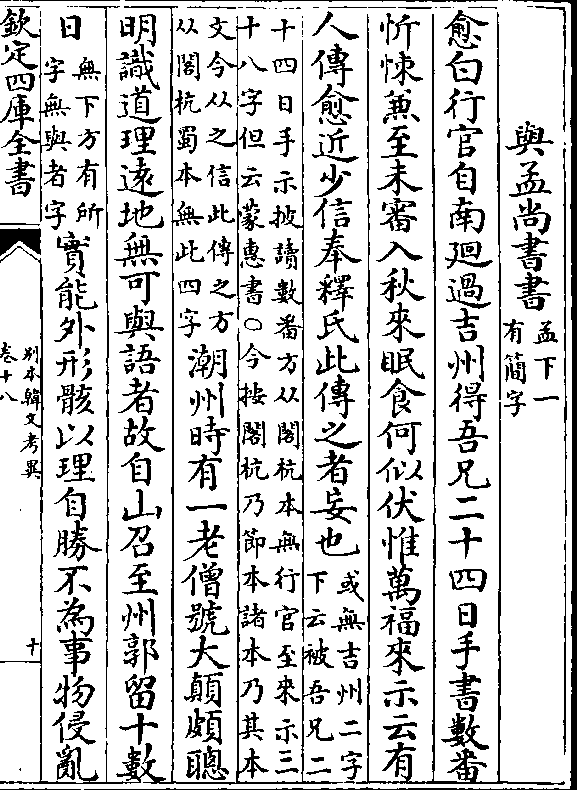 與孟尚書書孟下一有簡字
愈白行官自南廻過吉州得吾兄二十四日手書數番
忻悚兼至未審入秋來眠食何似伏惟萬福來示云有
人傳愈近少信奉釋氏此傳之者妄也或無吉州二字下云被吾兄二
十四日手示披讀數番方从閣杭本無行官至來示三十八字但云蒙惠書〇今按閣杭乃節本諸本乃其本
文今从之信此傳之方从閣杭蜀本無此四字潮州時有一老僧號大顛頗聰
明識道理逺地無可與語者故自山召至州郭留十數
日無下方有所字無與者字實能外形骸以理自勝不為事物侵亂
欽定四庫全書
别本韓文考異
卷十八
十